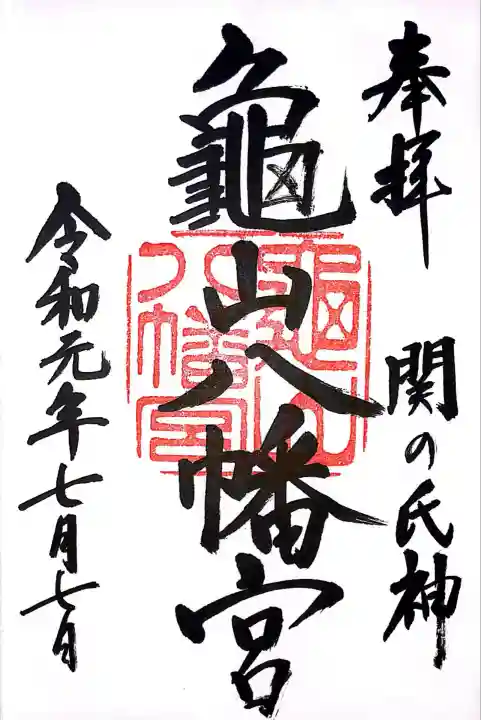 奉拝 関の氏神
龜山八幡宮
龜山八幡宮
令和元年七月七日